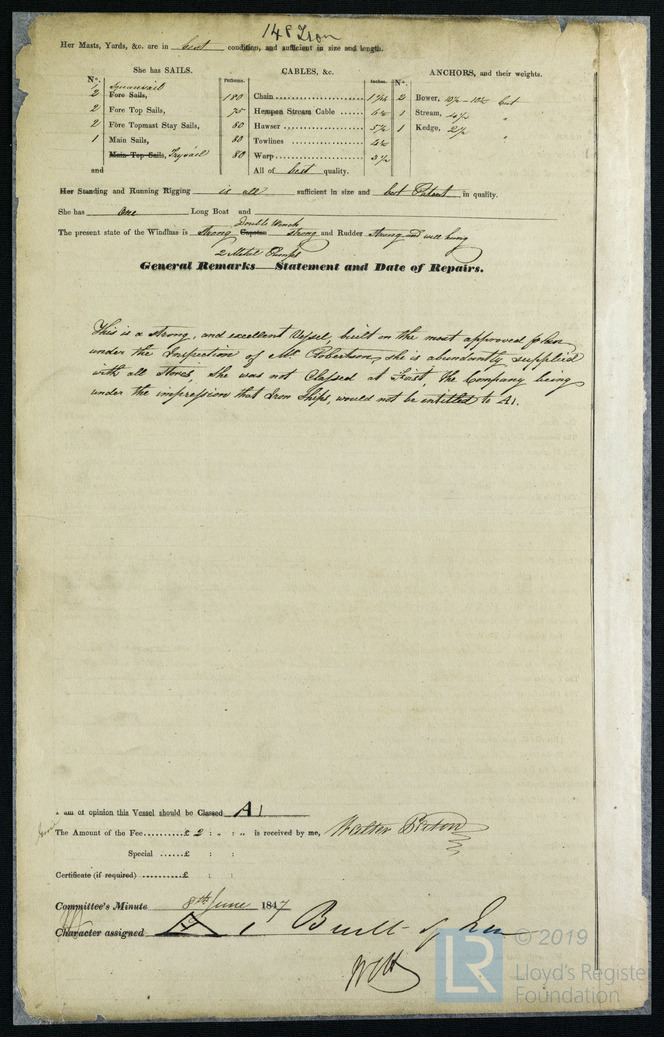 148 Iron
Her Masts, Yards, &c. are in best condition, and sufficient in size and length.
She has SAILS.
CABLES, &c.
ANCHORS, and their weights.
N°.
Fathoms.
Inches.
N°.
1 Squaresail
2 Fore Sails,
2 Fore Top Sails,
2 Fore Topmast Stay Sails,
1 Main Sails,
Main Top Sails, Trysail
and
Chain 180
Hempen Stream Cable 75
Hawser 80
Towlines 80
Warp 80
All of best quality.
2 Bower, best
1 Stream,
1 Kedge,
Her Standing and Running Rigging is all sufficient in size and best Patent in quality.
She has One Long Boat and
Double Winch
The present state of the Windlass is Strong Capstan Strong and Rudder Strong and well hung
2 Metal Pumps
General Remarks—Statement and Date of Repairs.
This is a strong, and excellent Vessel, built on the most approved plan
under the Inspection of Mr Robertson, she is abundantly supplied
with all Stores, She was not Classed at First, the Company being
under the impression that Iron Ships, would not be entitled to A1.
I am of opinion this Vessel should be Classed A1
The Amount of the Fee £ 2 : „ : „ is received by me, Walter
Special £ : :
Certificate (if required) £ : :
Committee's Minute 8th June 1847
Character assigned A 1 Built of Iron
LR © 2019
Lloyd's Register
Foundation